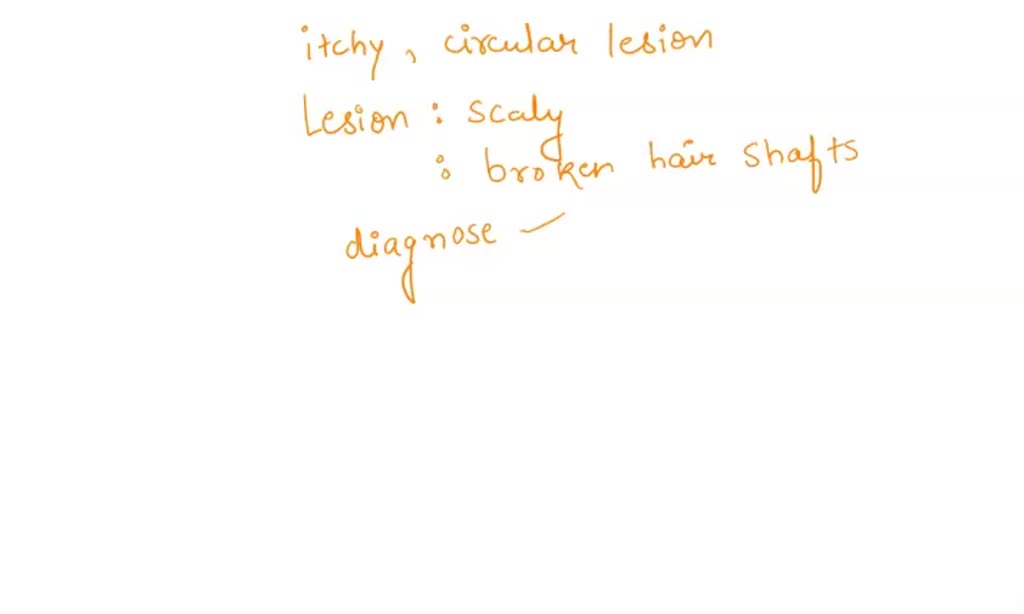 itchy, circular lesion
Lesion : scaly
: broken hair shafts
diagnose –